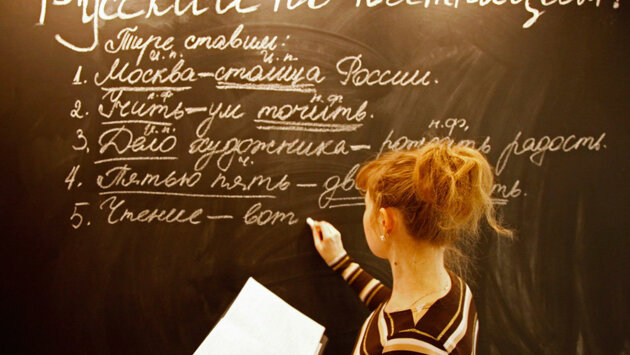 Русский по
Тире ставим:
и.п. и.п.
1. Москва – столица России.
н.ф. н.ф.
2. Учить – ум точить.
и.п. н.ф.
3. Дело художника – радость.
ч.
4. Пятью пять –
5. Чтение – вот